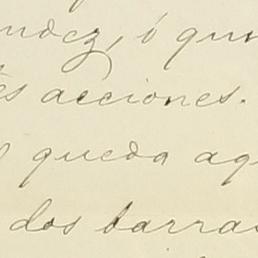 ndez, ó qui
es acciones.
queda aq
dos barras